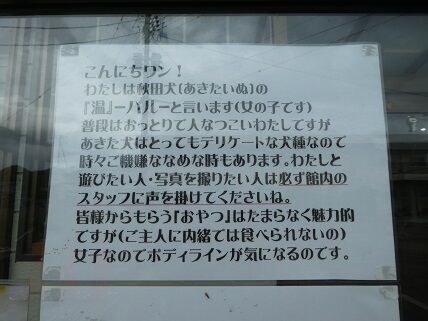 こんにちワン！
わたしは秋田犬(あきたいぬ)の
『温』ーハルーと言います(女の子です)
普段はおっとりで人なつこいわたしですが
あきた犬はとってもデリケートな犬種なので
時々ご機嫌ななめな時もあります。わたしと
遊びたい人・写真を撮りたい人は必ず館内の
スタッフに声を掛けてくださいね。
皆様からもらう「おやつ」はたまらなく魅力的
ですが(ご主人に内緒では食べられないの)
女子なのでボディラインが気になるのです。